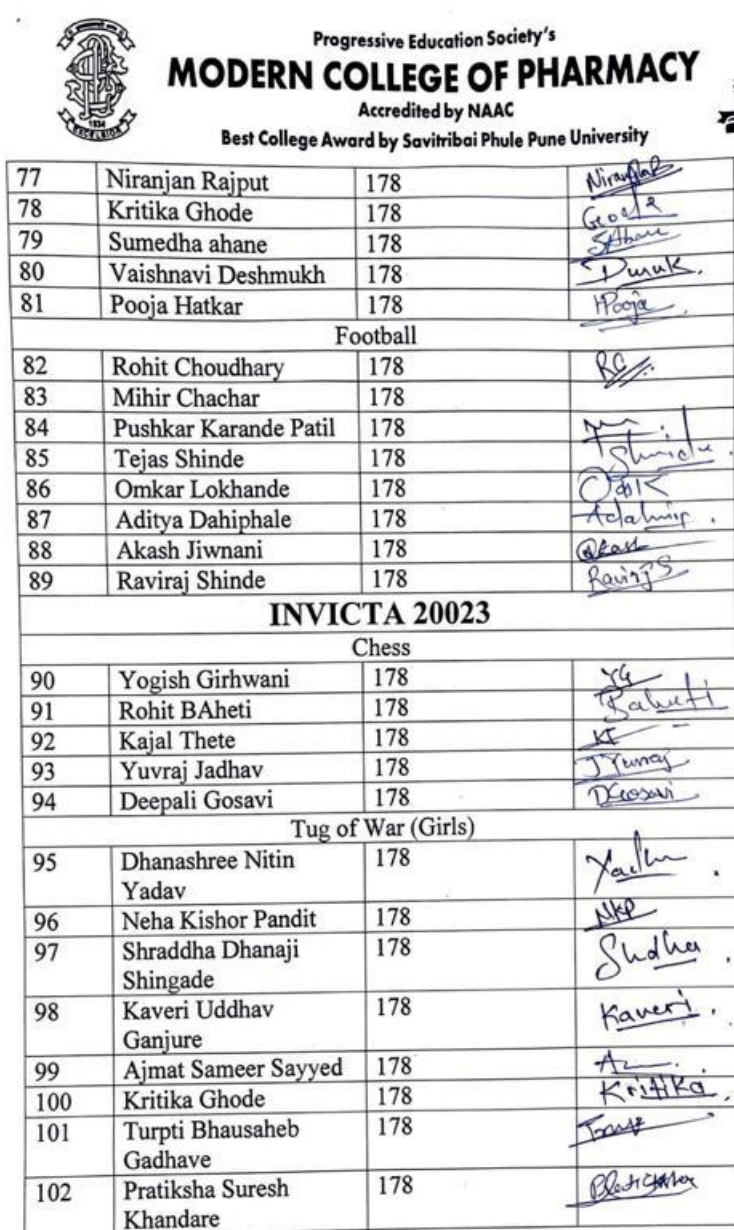 Progressive Education Society's
MODERN COLLEGE OF PHARMACY
Accredited by NAAC
Best College Award by Savitribai Phule Pune University
1934
EXCELSIOR
77 Niranjan Rajput 178
78 Kritika Ghode 178
79 Sumedha ahane 178
80 Vaishnavi Deshmukh 178
81 Pooja Hatkar 178 HPooja
Football
82 Rohit Choudhary 178 RC
83 Mihir Chachar 178
84 Pushkar Karande Patil 178
85 Tejas Shinde 178
86 Omkar Lokhande 178
87 Aditya Dahiphale 178
88 Akash Jiwnani 178
89 Raviraj Shinde 178
INVICTA 20023
Chess
90 Yogish Girhwani 178 YG
91 Rohit BAheti 178 Baheti
92 Kajal Thete 178 KT
93 Yuvraj Jadhav 178
94 Deepali Gosavi 178 DGosavi
Tug of War (Girls)
95 Dhanashree Nitin
Yadav 178
96 Neha Kishor Pandit 178 NKP
97 Shraddha Dhanaji
Shingade 178
98 Kaveri Uddhav
Ganjure 178 Kaveri.
99 Ajmat Sameer Sayyed 178
100 Kritika Ghode 178 Kritika.
101 Turpti Bhausaheb
Gadhave 178
102 Pratiksha Suresh
Khandare 178